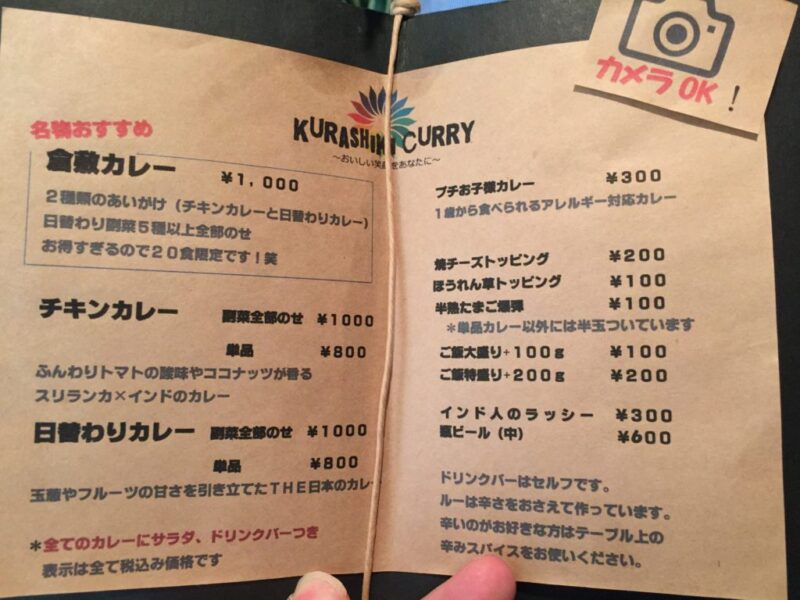 カメラOK!
KURASHIKI CURRY
名物おすすめ
倉敷カレー ¥1,000
2種類のあいがけ(チキンカレーと日替わりカレー)
日替わり副菜5種以上全部のせ
お得すぎるので20食限定です!笑
チキンカレー 副菜全部のせ ¥1000
単品 ¥800
ふんわりトマトの酸味やココナッツが香る
スリランカ×インドのカレー
日替わりカレー 副菜全部のせ ¥1000
単品 ¥800
玉葱やフルーツの甘さを引き立てたTHE日本のカレ
*全てのカレーにサラダ、ドリンクバーつき
表示は全て税込み価格です
〜おいしい笑 をあなたに〜
プチお子様カレー ¥300
1歳から食べられるアレルギー対応カレー
焼チーズトッピング ¥200
ほうれん草トッピング ¥100
半熟たまご爆弾 ¥100
*単品カレー以外には半玉ついています
ご飯大盛り+100g ¥100
ご飯特盛り+200g ¥200
インド人のラッシー ¥300
瓶ビール(中) ¥600
ドリンクバーはセルフです。
ルーは辛さをおさえて作っています。
辛いのがお好きな方はテーブル上の
辛みスパイスをお使いください。